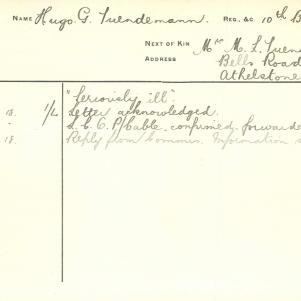 NAME Hugo G. Tuendemann. REG. &C 10th B
NEXT OF KIN Mrs M. L. Tuen
ADDRESS Bells Road
Athelstone
"Seriously ill".
18. 1/L Letter acknowledged.
" L.C.O. P/Cable confirmed. forwarde
18. Reply from Commrs. Information